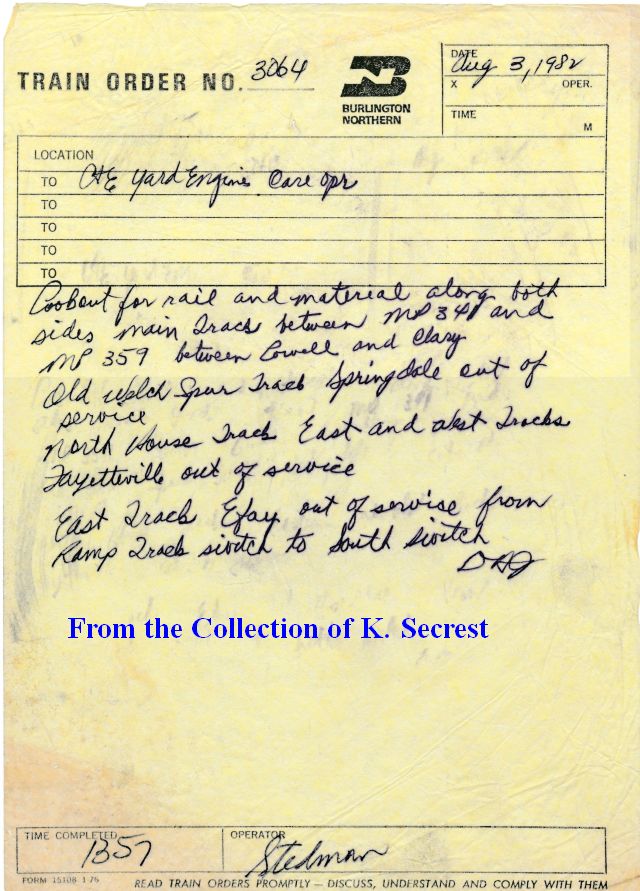 TRAIN ORDER NO. 3064
BURLINGTON
NORTHERN
DATE
Aug 3, 1982
X OPER.
TIME
M
LOCATION
TO C&E Yard Engine Care Opr
TO
TO
TO
TO
Lookout for rail and material along both
sides main Track between MP 341 and
MP 359 between Lowell and Clary
Old Welch Spur Track Springdale out of
service
North House Track East and West Tracks
Fayetteville out of service
East Track Efay out of service from
Ramp Track switch to South Switch
From the Collection of K. Secrest
TIME COMPLETED
1357
OPERATOR
Stedman
FORM 15108 1-76
READ TRAIN ORDERS PROMPTLY — DISCUSS, UNDERSTAND AND COMPLY WITH THEM